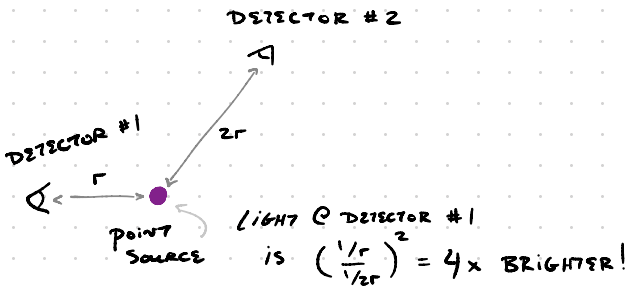 DETECTOR #2
DETECTOR #1
2r
r
POINT
SOURCE
LIGHT @ DETECTOR #1
is (1/r / 1/2r)² = 4x BRIGHTER!